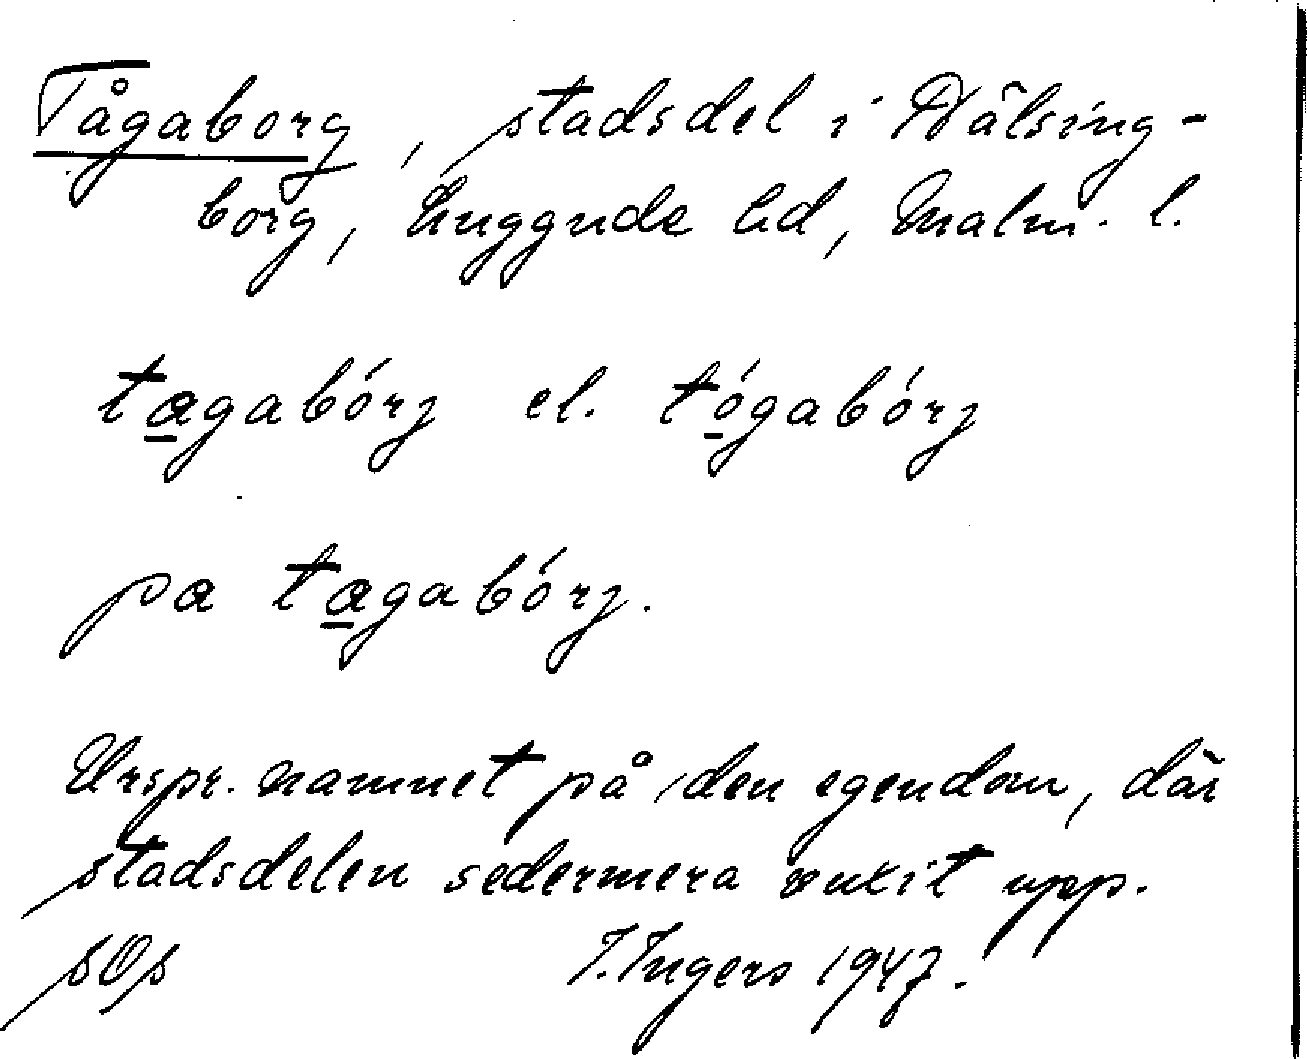 Tågaborg, stadsdel i Hälsing-
borg, Luggude hd, Malm. l.
tɑ̲gabórj el. tó̲gabórj
pɑ tɑ̲gabórj.
Urspr. namnet på den egendom, där
stadsdelen sedermera vuxit upp.
sOp I. Ingers 1947.